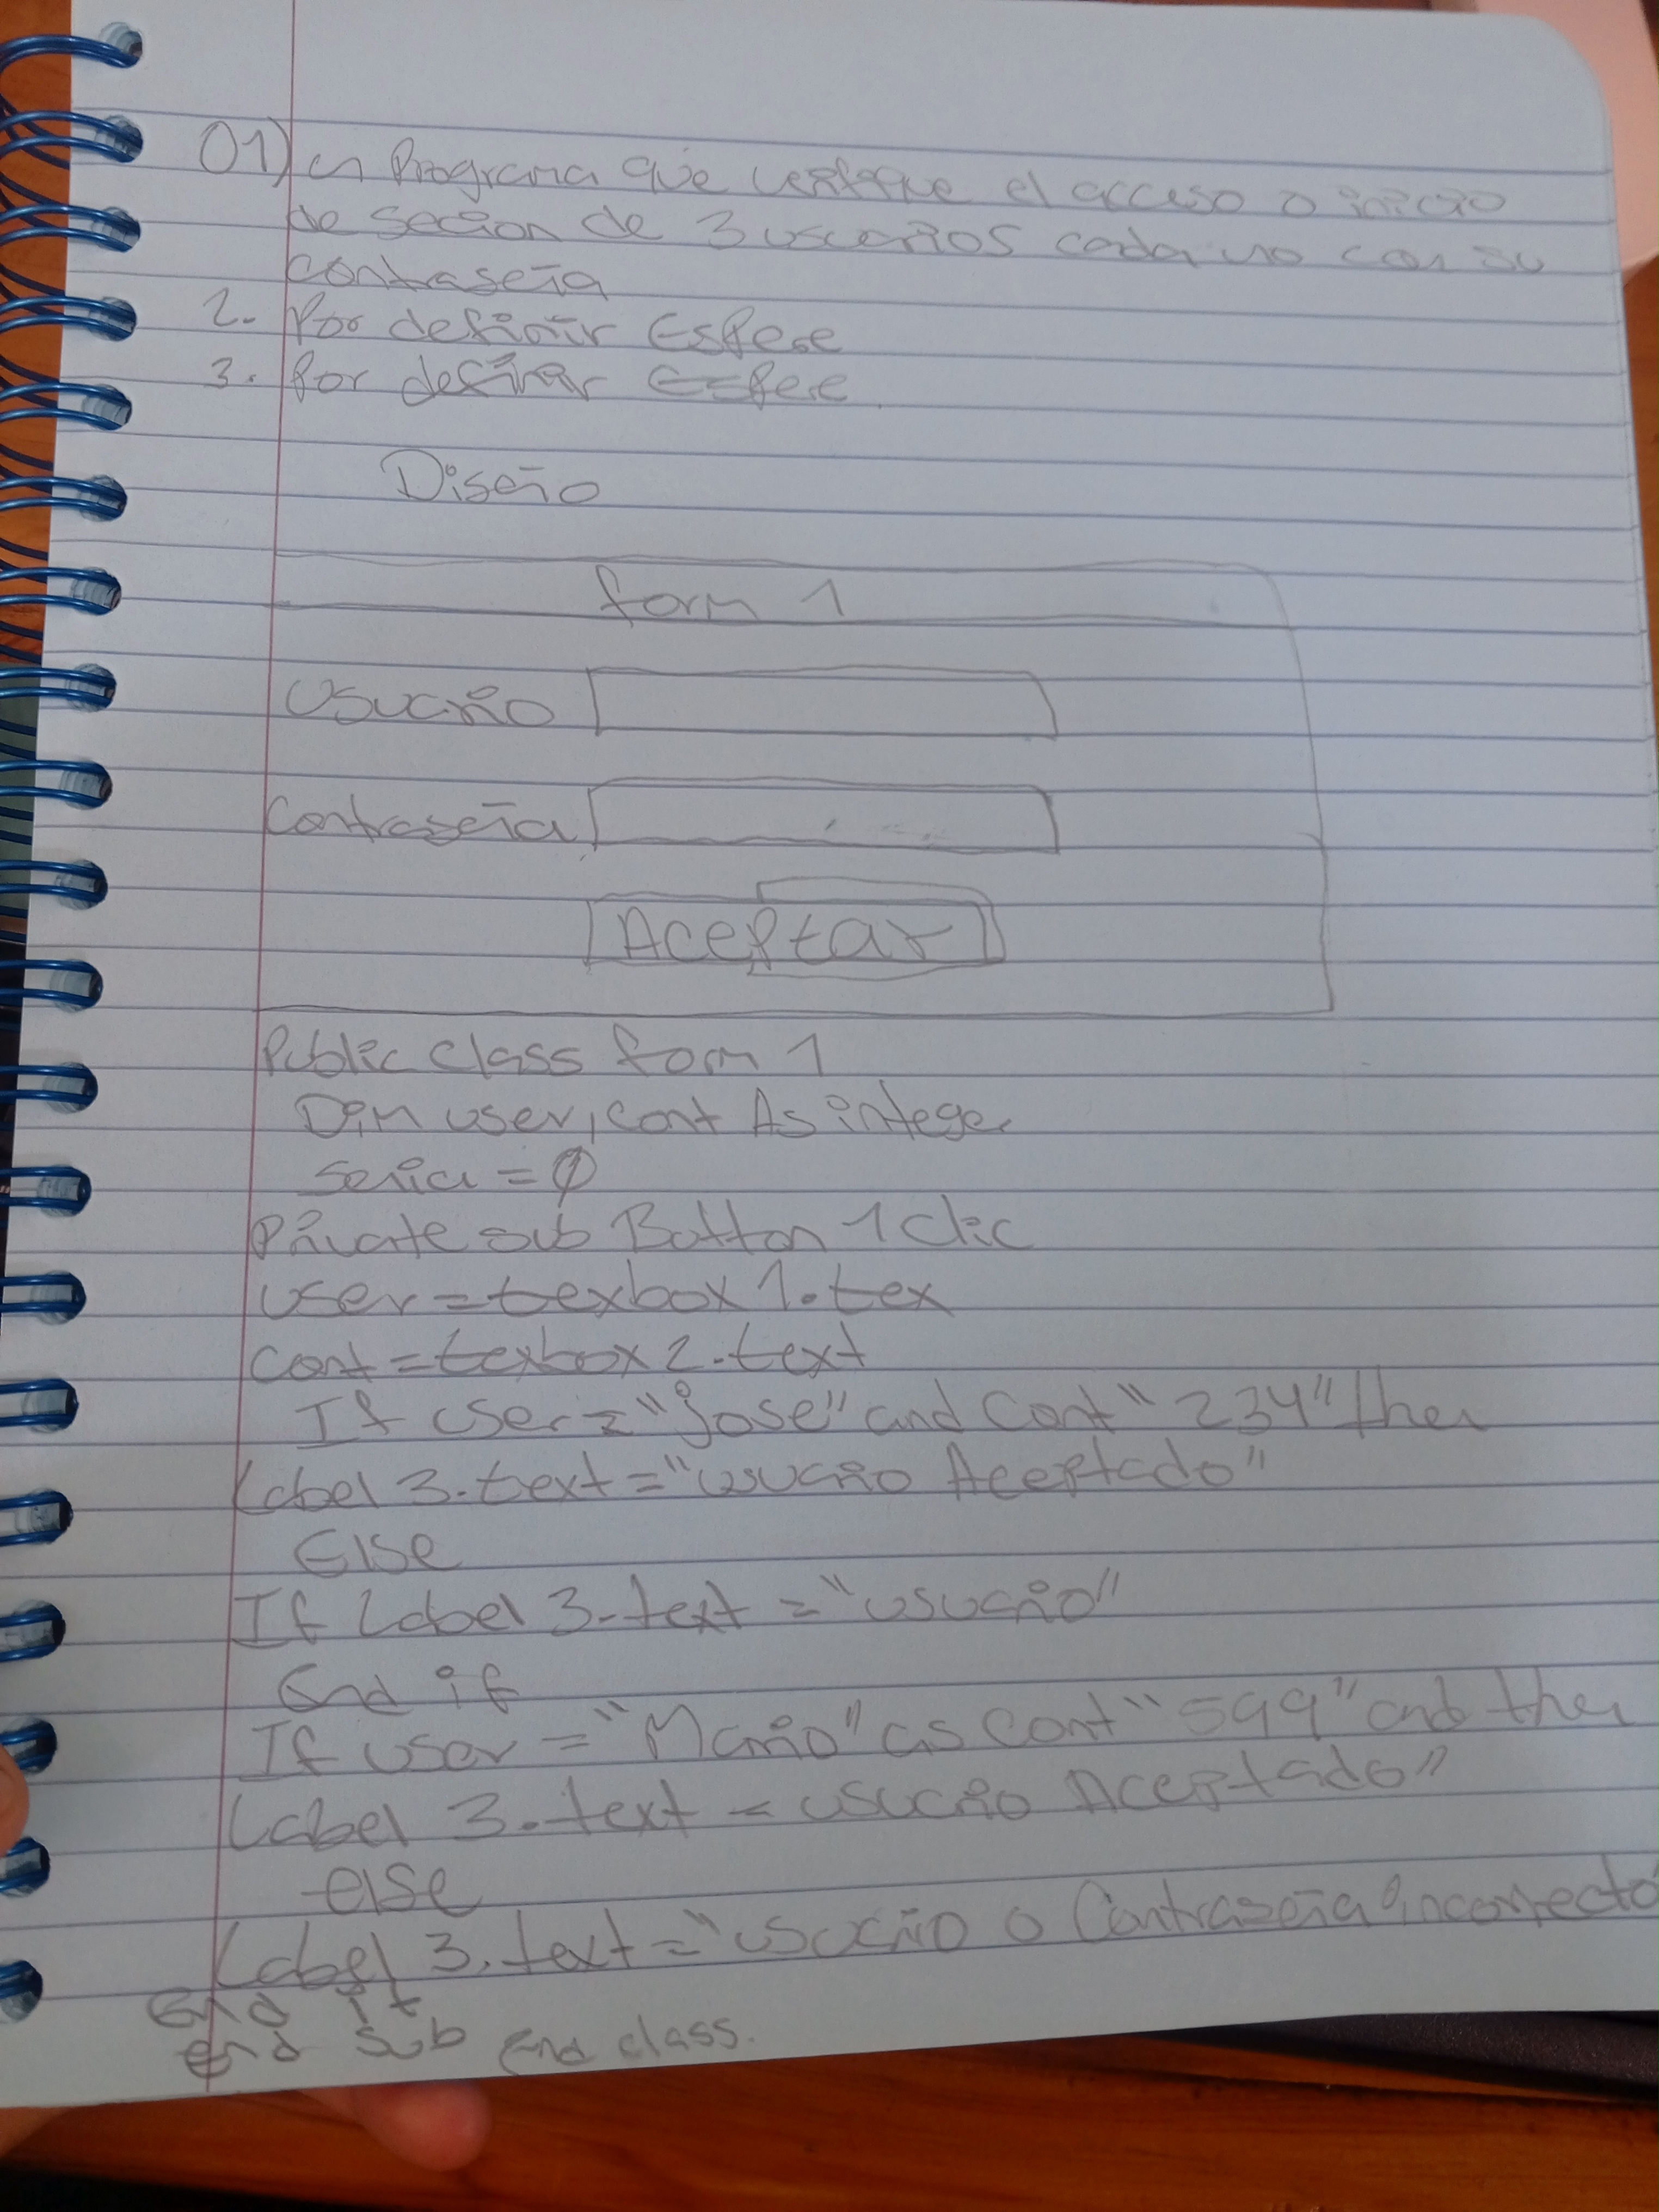 01) un Programa que verifique el acceso o inicio
de secion de 3 usuarios cada uno con su
contraseña
2. Por definir Espere
3. Por definir Espere
Diseño
form 1
Usuario
Contraseña
Aceptar
Public class form 1
Dim user, cont As integer
seria = 0
Private sub Botton 1 Clic
user = texbox 1. tex
cont = texbox 2. text
If user = "jose" and Cont "234" then
Label 3. text = "usuario Aceptado"
Else
If Label 3. text = "usuario"
End if
If user = "Mario" as Cont "599" and then
Label 3. text = usuario Aceptado"
else
Label 3. text = "usuario o Contraseña incorrecto
End if
end sub End class.